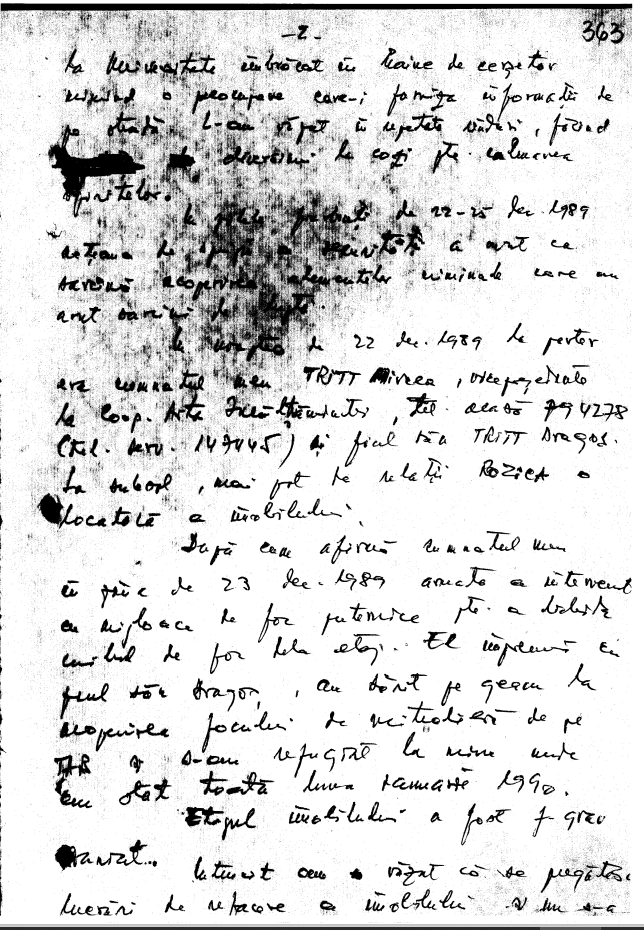 -2-
363
la Universitate îmbrăcat în haine de cerșetor
mimînd o persoană care-i furniza informații de
pe stradă. L-am văzut în repetate rînduri, făcînd
diversiuni la cozi ptr. calmarea
spiritelor.
În zilele fierbinți de 22-25 dec. 1989
acțiunea de a securității a avut ca
sarcină acoperirea elementelor criminale care au
avut sarcini de luptă.
În noaptea de 22 dec. 1989 la parter
era cumnatul meu TRITT Mircea, vicepreședinte
la Coop. Arta Încălțămintei, tel. acasă 794278
(tel. serv. 147445) și fiul său TRITT Dragoș.
La subsol, mai pot da relații ROZICA o
locatară a imobilului.
După cum afirmă cumnatul meu
în ziua de 23 dec. 1989 armata a intervenit
cu mijloace de foc puternice ptr. a lichida
cuibul de foc dela etaj. El împreună cu
fiul său Dragoș, au sărit pe geam la
acoperirea focului de mitralieră de pe
TAB și s-au refugiat la mine unde
am stat toată luna ianuarie 1990.
Etajul imobilului a fost f. grav
avariat. Întrucît am văzut că se pregătesc
lucrări de refacere a imobilului și nu s-a